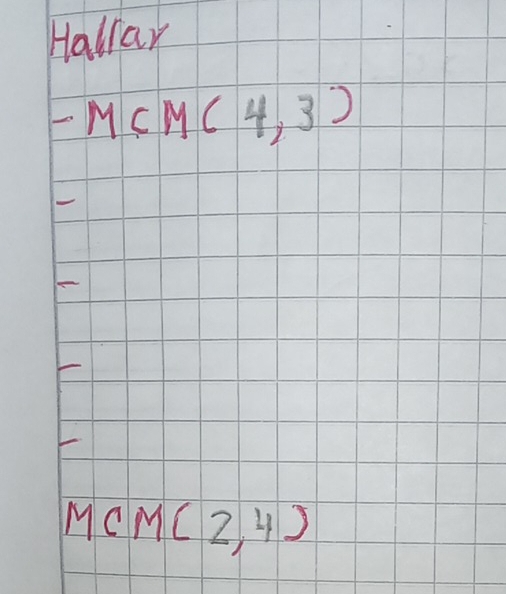 Hallar
- MCM(4,3)
-
-
-
-
MCM(2,4)